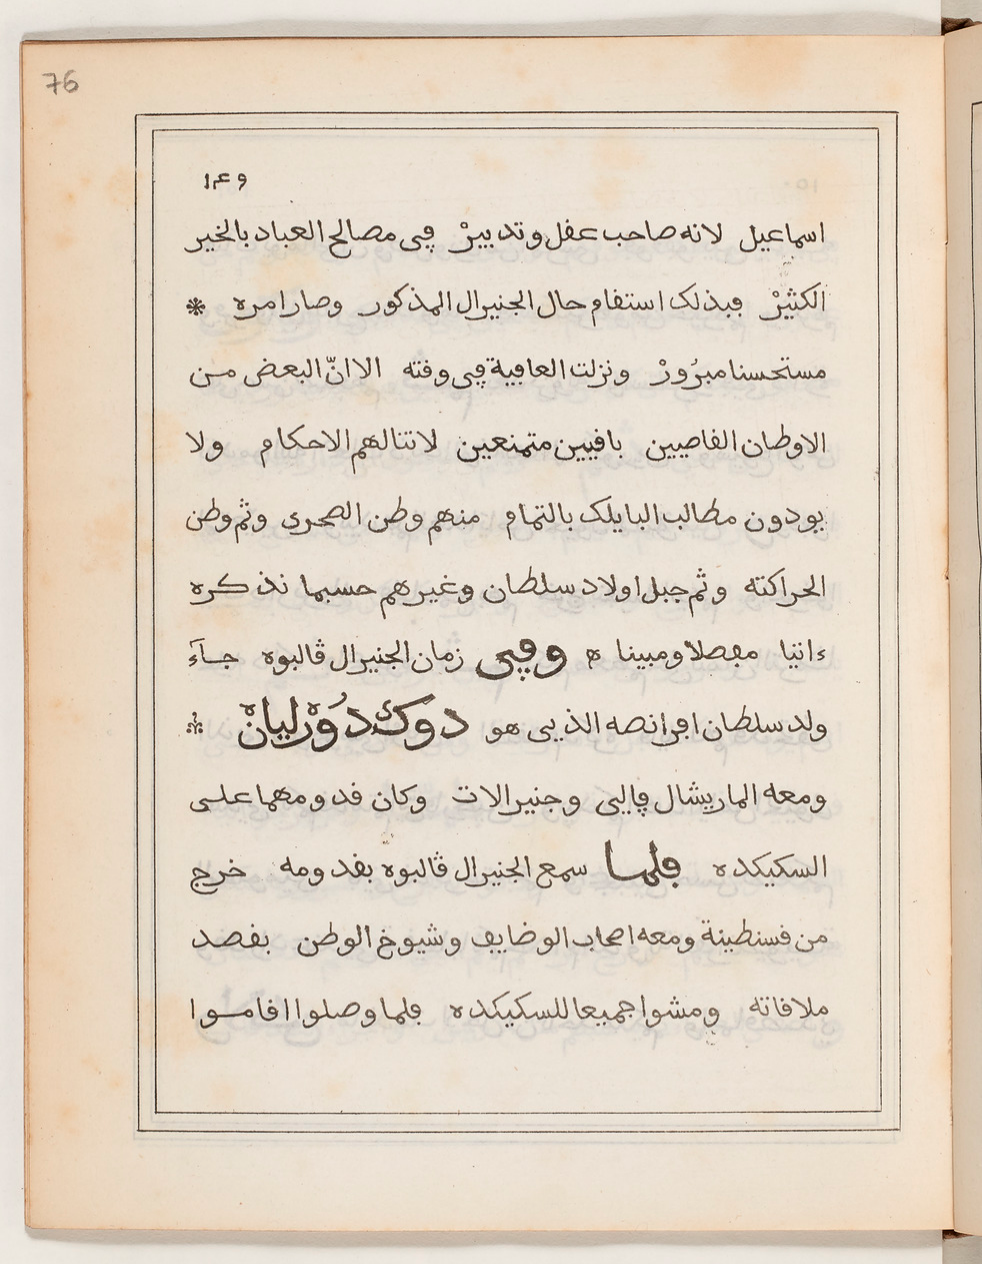 76
١٤٩
اسماعيل لانه صاحب عقل وتدبيرْ في مصالح العباد بالخير
الكثيرْ فبذلك استقام حال الجنيرال المذكور وصار امره *
مستحسنا مبرُورْ ونزلت العافية في وقته الا انّ البعض من
الاوطان القاصيين باقيين متمنعين لا تنالهم الاحكام ولا
يودون مطالب البايلك بالتمام منهم وطن الصحرى وثم وطن
الحراكتة وثم جبل اولاد سلطان وغيرهم حسبما نذكره
ءانيا مفصلا ومبينا ه وفي زمان الجنيرال ڤالبوه جـآءَ
ولد سلطان افرانصه الذي هو دوك دُوْرليانْ
ومعه الماريشال ڢالي وجنيرالات وكان قدومهما على
السكيكده فلمـا سمع الجنيرال ڤالبوه بقدومه خرج
من قسنطينة ومعه اصحاب الوضايف وشيوخ الوطن بقصد
ملاقاته ومشوا جميعا للسكيكده فلما وصلوا اقامـوا